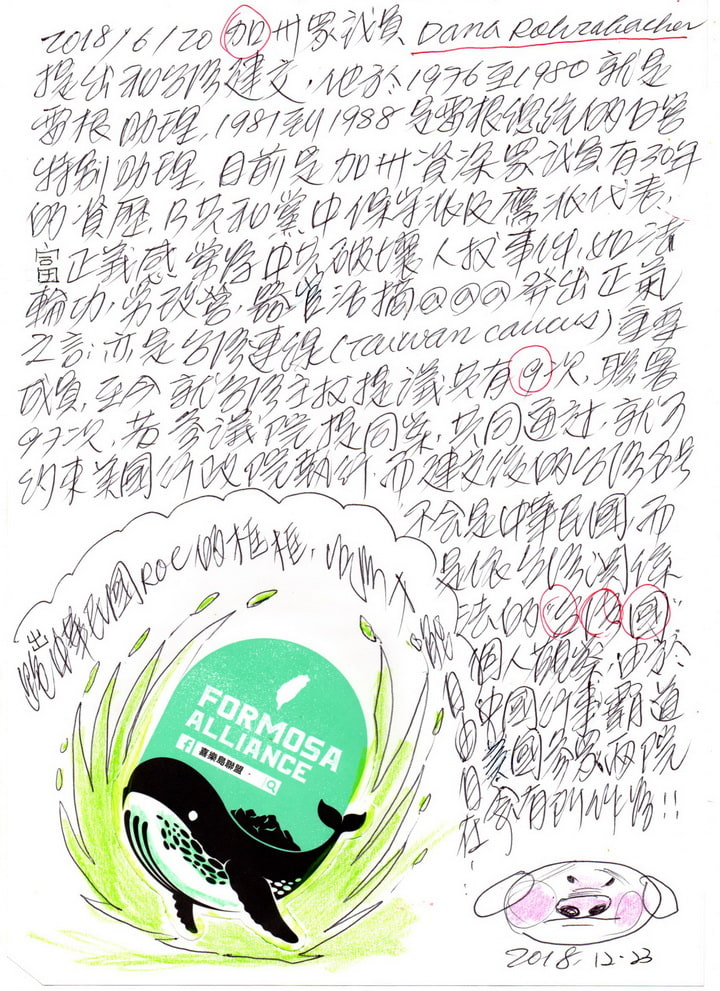 2018/6/20 加州眾議員 Dana Rohrabacher
提出和台灣建交,他於1976至1980就是
雷根助理,1981到1988是雷根總統的白宮
特別助理,目前是加州資深眾議員有30年
的資歷,乃共和黨中保守派及鷹派代表,
富正義感常將中共破壞人權事件,如法
輪功,勞改營,器官活摘@@@發出正氣
之言;亦是台灣連線(Taiwan caucus)主要
成員,至今就台灣主权提議共有9次,聯署
97次,若參議院提同案,共同通過,就可
約束美國行政院執行,而建交後的台灣名号
不會是中華民國,而
是依台灣關係
法的"台灣國"
個人觀察,由於
中國行事霸道
美國參眾兩院
會有所作為!!
跳出中華民國ROC的框框,
自由自在!
FORMOSA
ALLIANCE
喜樂島聯盟
2018.12.23